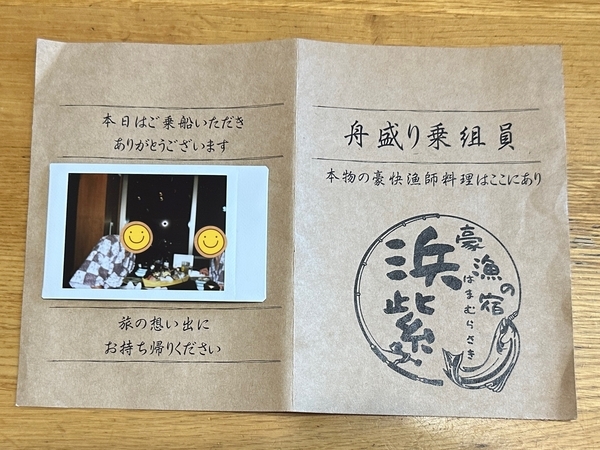 本日はご乗船いただき
ありがとうございます
旅の想い出に
お持ち帰りください
舟盛り乗組員
本物の豪快漁師料理はここにあり
豪漁の宿
浜紫
はまむらさき